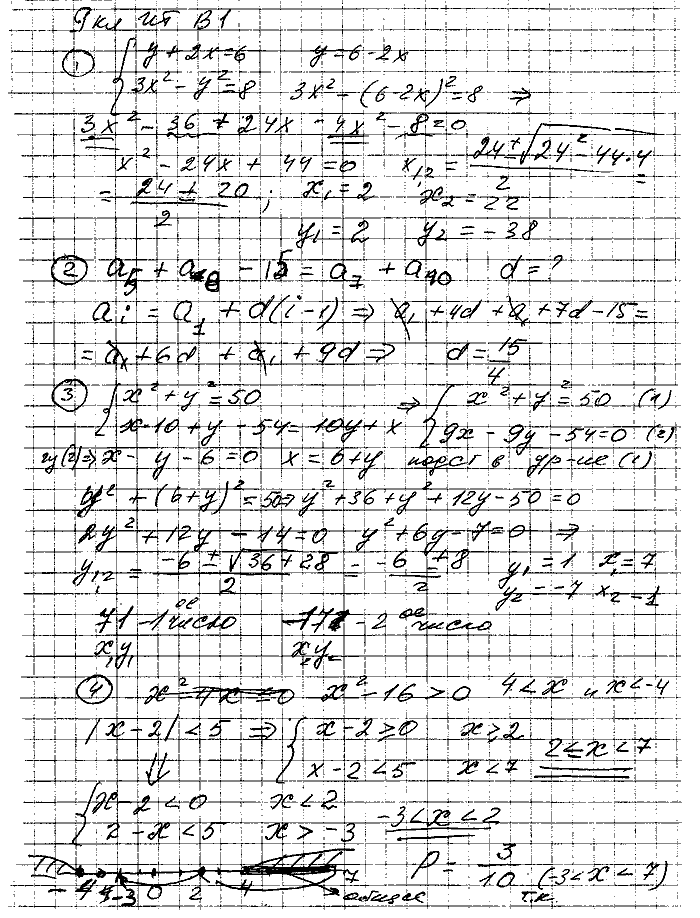 9 кл ИТ В1
① { y + 2x = 6   y = 6 - 2x
3x² - y² = 8   3x² - (6 - 2x)² = 8 ⇒
3x² - 36 + 24x - 4x² - 8 = 0
x² - 24x + 44 = 0   x₁,₂ = (24 ± √(24² - 44·4))/2 =
= (24 ± 20)/2 ;   x₁ = 2   x₂ = 22
y₁ = 2   y₂ = -38
② a₅ + a₈ - 15 = a₇ + a₁₀   d = ?
aᵢ = a₁ + d(i - 1) ⇒ a₁ + 4d + a₁ + 7d - 15 =
= a₁ + 6d + a₁ + 9d ⇒   d = 15/4
③ { x² + y² = 50   ⇒ { x² + y² = 50 (1)
x·10 + y - 54 = 10y + x   9x - 9y - 54 = 0 (2)
из (2) ⇒ x - y - 6 = 0   x = 6 + y   подст в ур-ие (1)
y² + (6 + y)² = 50 ⇒ y² + 36 + y² + 12y - 50 = 0
2y² + 12y - 14 = 0   y² + 6y - 7 = 0 ⇒
y₁,₂ = (-6 ± √(36 + 28))/2 = (-6 ± 8)/2   y₁ = 1   x₁ = 7
y₂ = -7   x₂ = -1
71 - 1ое число   -17 - 2ое число
x₁y₁   x₂y₂
④ x² - 4x = 0   x² - 16 > 0   4 < x и x < -4
|x - 2| < 5 ⇒ { x - 2 ≥ 0   x ≥ 2   2 ≤ x < 7
x - 2 < 5   x < 7
{ x - 2 < 0   x < 2
2 - x < 5   x > -3   -3 < x < 2
-4 -3 0 2 4 7   общее   P = 3/10   т.к. (-3 < x < 7)